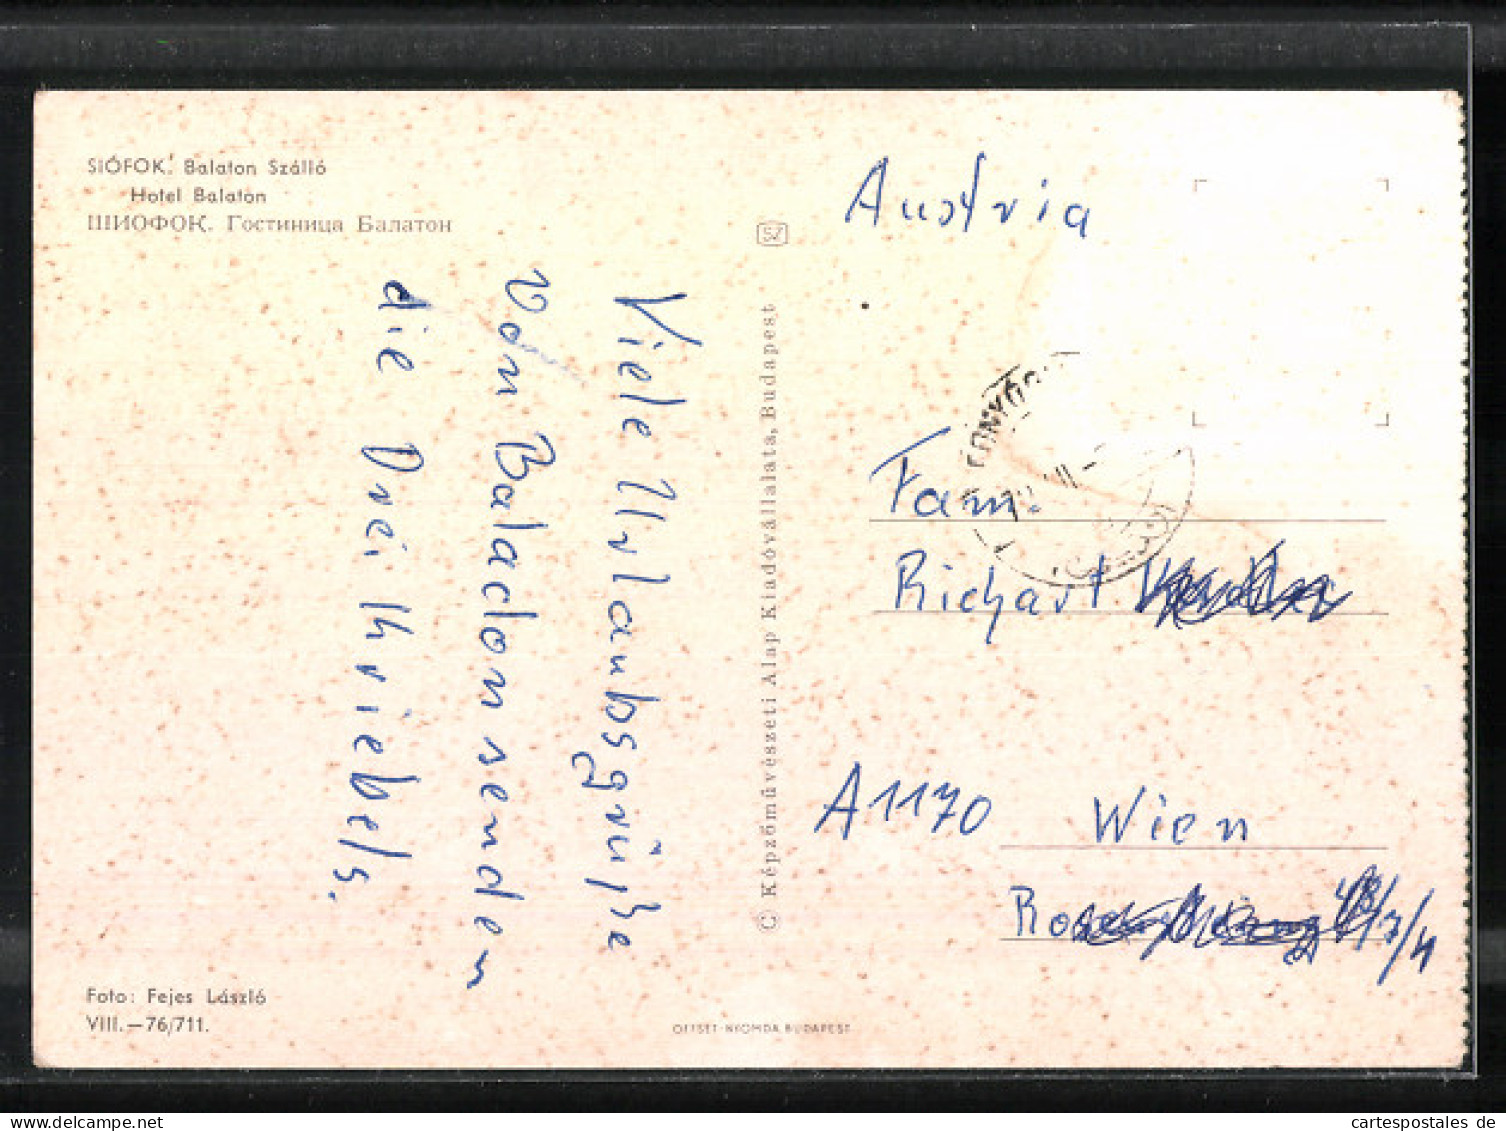 SIÓFOK. Balaton Szálló
Hotel Balaton
ШИОФОК. Гостиница Балатон
Viele Urlaubsgrüße
von Balacton senden
die Drei Kriebels.
Foto: Fejes László
VIII.—76/711.
SZ
© Képzőművészeti Alap Kiadóvállalata, Budapest
OFFSET-NYOMDA BUDAPEST
Austria
Fam.
Richart
A1170 Wien
cartespostales de
www.delcampe.net